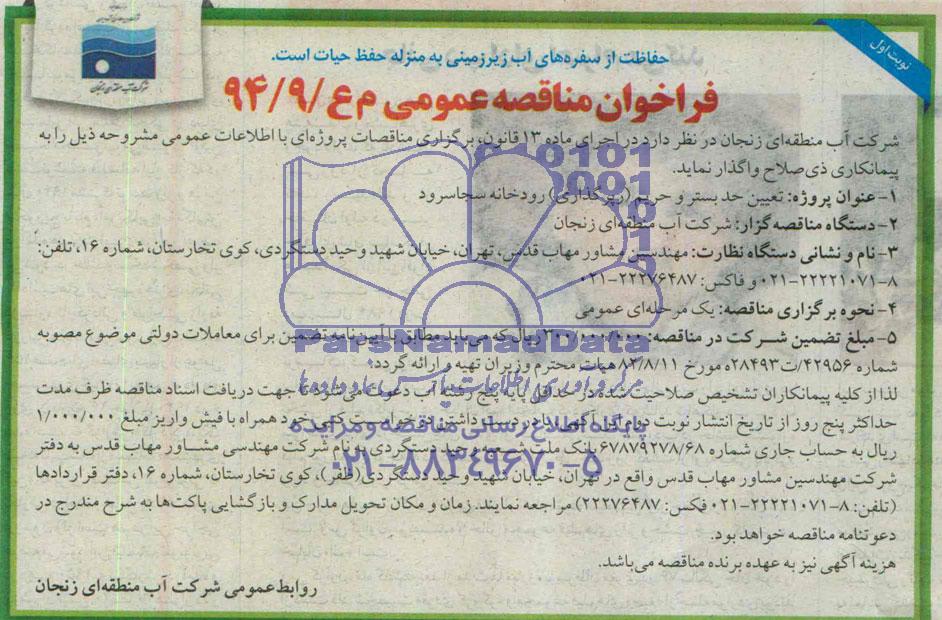 نوبت اول
شرکت آب منطقه‌ای زنجان
حفاظت از سفره‌های آب زیرزمینی به منزله حفظ حیات است.
فراخوان مناقصه عمومی م ع /۹۴/۹
شرکت آب منطقه‌ای زنجان در نظر دارد در اجرای ماده ۱۳ قانون، برگزاری مناقصات پروژه‌ای با اطلاعات عمومی مشروحه ذیل را به
پیمانکاری ذی‌صلاح واگذار نماید.
۱- عنوان پروژه: تعیین حد بستر و حریم (رپرگذاری) رودخانه سجاسرود
۲- دستگاه مناقصه‌گزار: شرکت آب منطقه‌ای زنجان
۳- نام و نشانی دستگاه نظارت: مهندسین مشاور مهاب قدس، تهران، خیابان شهید وحید دستگردی، کوی تخارستان، شماره ۱۶، تلفن:
۸-۲۲۲۲۱۰۷۱-۰۲۱ و فاکس: ۲۲۲۷۶۴۸۷-۰۲۱
۴- نحوه برگزاری مناقصه: یک مرحله‌ای عمومی
۵- مبلغ تضمین شرکت در مناقصه: ریال که می‌باید مطابق با آیین‌نامه تضمین برای معاملات دولتی موضوع مصوبه
شماره ۴۲۹۵۶/ت۲۸۴۹۳ه مورخ ۸۲/۸/۱۱ هیات محترم وزیران تهیه و ارائه گردد.
لذا از کلیه پیمانکاران تشخیص صلاحیت شده در حداقل پایه پنج رشته آب دعوت می‌شود تا جهت دریافت اسناد مناقصه ظرف مدت
حداکثر پنج روز از تاریخ انتشار نوبت دوم این آگهی با در دست داشتن درخواست کتبی خود همراه با فیش واریز مبلغ ۱/۰۰۰/۰۰۰
ریال به حساب جاری شماره ۶۷۸۷۹۲۷۸/۶۸ بانک ملت شعبه وحید دستگردی به نام شرکت مهندسی مشاور مهاب قدس به دفتر
شرکت مهندسین مشاور مهاب قدس واقع در تهران، خیابان شهید وحید دستگردی (ظفر)، کوی تخارستان، شماره ۱۶، دفتر قراردادها
(تلفن: ۸-۲۲۲۲۱۰۷۱-۰۲۱ فکس: ۲۲۲۷۶۴۸۷) مراجعه نمایند. زمان و مکان تحویل مدارک و بازگشایی پاکت‌ها به شرح مندرج در
دعوتنامه مناقصه خواهد بود.
هزینه آگهی نیز به عهده برنده مناقصه می‌باشد.
روابط عمومی شرکت آب منطقه‌ای زنجان
ParsNamadData
مرکز فرآوری اطلاعات پارس نماد داده‌ها
پایگاه اطلاع رسانی مناقصه و مزایده
۰۲۱-۸۸۳۴۹۶۷۰-۵